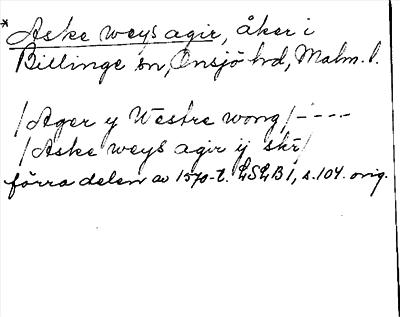 *Aske weys agir, åker i
Billinge sn, Onsjö hd, Malm. l.
/Ager y Westre wong/-----
/Aske weys agir ij skr/
förra delen av 1570-t. LSLB 1, s. 104. orig.